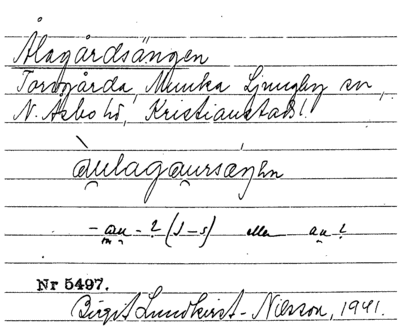 Ålagårdsängen
Torsgårda, Munka Ljungby sn,
N. Åsbo hd, Kristianstads l.
àu̯lagau̯rsæŋən
- au̯ - ? (1-s) eller au̯ ?
Nr 5497.
Birgit Lundkvist-Nilsson, 1941.